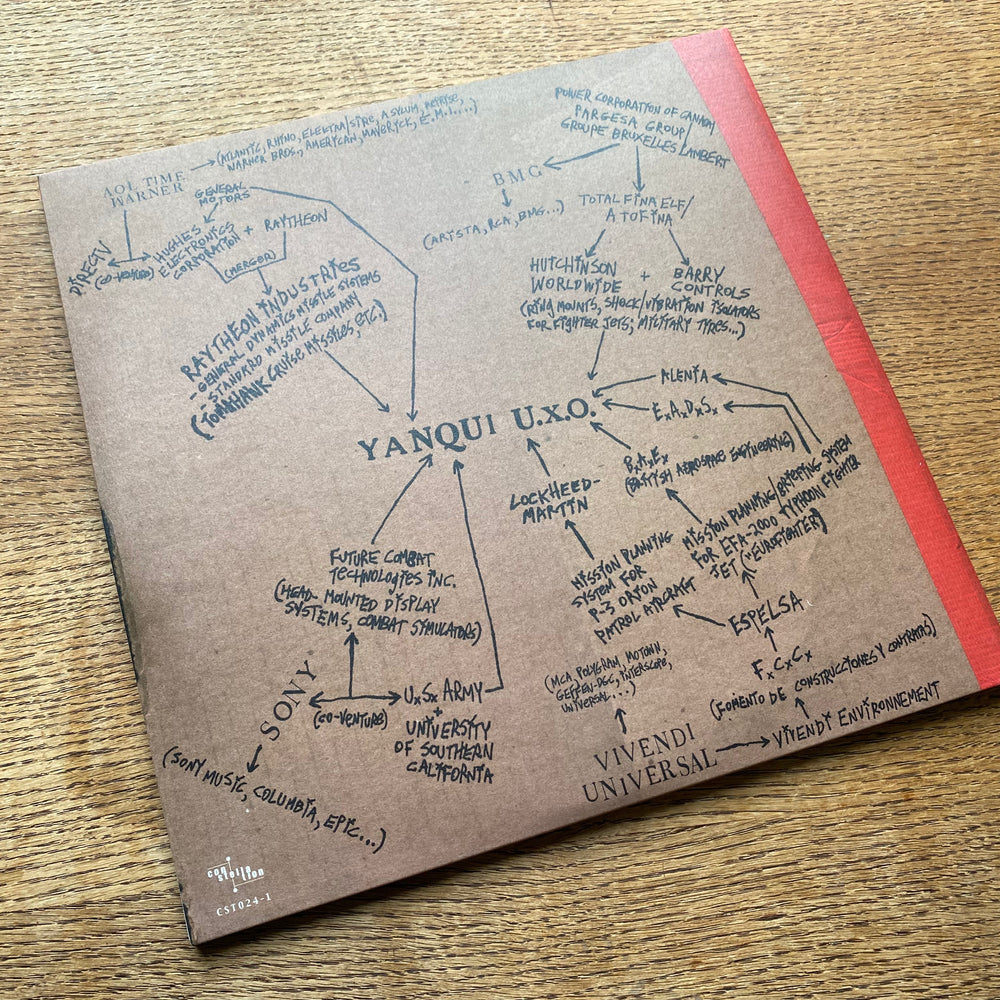 AOL TIME
WARNER
(ATLANTIC, RHINO, ELEKTRA/SIRE, ASYLUM, REPRISE,
WARNER BROS., AMERYCAN, MAVERYCK, E.M.I....)
GENERAL
MOTORS
DIRECTV
(CO-VENTURE)
HUGHES
ELECTRONICS
CORPORATION
+
RAYTHEON
(MERGER)
RAYTHEON INDUSTRIES
- GENERAL DYNAMICS MISSILE SYSTEMS
- STANDARD MISSILE COMPANY
(TOMAHAWK CRUISE MISSILES, ETC.)
POWER CORPORATION OF CANADA/
PARGESA GROUP/
GROUPE BRUXELLES LAMBERT
BMG
(ARISTA, RCA, BMG...)
TOTAL FINA ELF/
ATOFINA
HUTCHINSON
WORLDWIDE
+
BARRY
CONTROLS
(RING MOUNTS, SHOCK/VIBRATION ISOLATORS
FOR FIGHTER JETS, MILITARY TYRES...)
ALENIA
E.A.D.S.
YANQUI U.X.O.
B.A.E.
(BRITISH AEROSPACE ENGINEERING)
LOCKHEED-
MARTIN
MISSION PLANNING/BRIEFING SYSTEM
FOR EFA-2000 TYPHOON FIGHTER
JET ("EUROFIGHTER)
MISSION PLANNING
SYSTEM FOR
P-3 ORION
PATROL AIRCRAFT
FUTURE COMBAT
TECHNOLOGIES INC.
(HEAD-MOUNTED DISPLAY
SYSTEMS, COMBAT SIMULATORS)
ESPELSA
F.C.C.
(FOMENTO DE CONSTRUCCIONES Y CONTRATAS)
SONY
(CO-VENTURE)
U.S. ARMY
+
UNIVERSITY
OF SOUTHERN
CALIFORNIA
(SONY MUSIC, COLUMBIA, EPIC...)
(MCA POLYGRAM, MOTOWN,
GEFFEN-DGC, INTERSCOPE,
UNIVERSAL...)
VIVENDI
UNIVERSAL
VIVENDI ENVIRONNEMENT
constellation
CST024-1